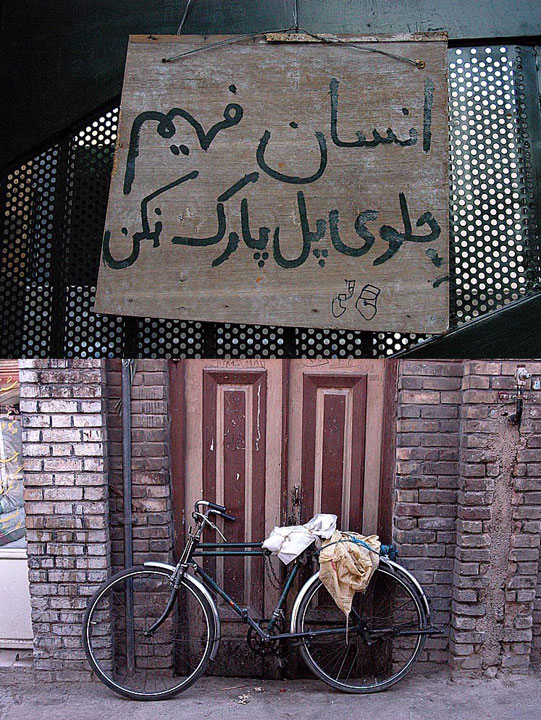 انسان فهیم
جلوی پل پارک نکن